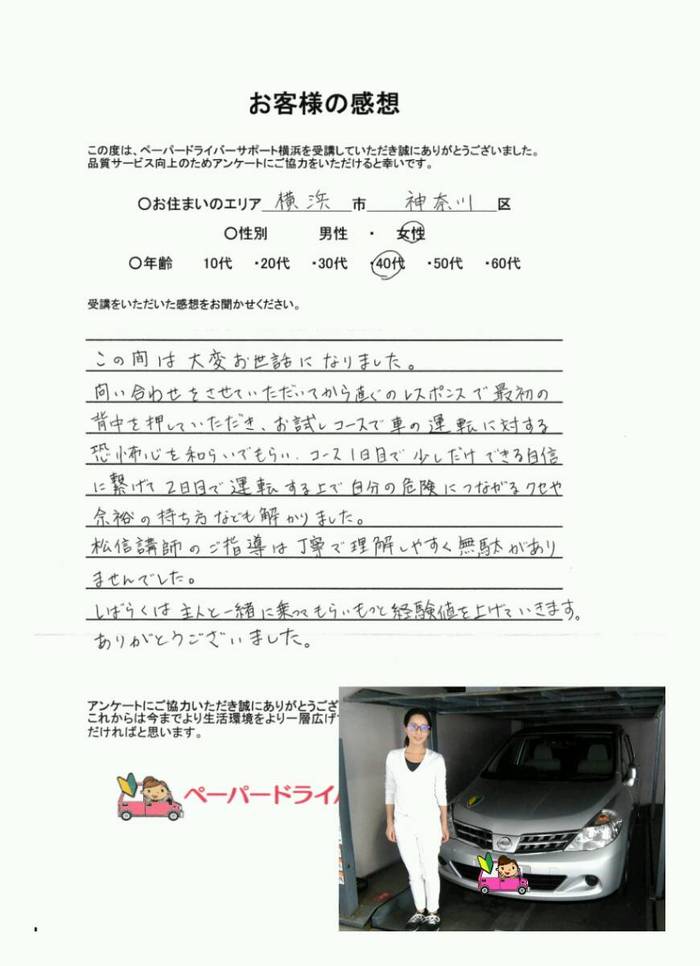 お客様の感想
この度は、ペーパードライバーサポート横浜を受講していただき誠にありがとうございました。
品質サービス向上のためアンケートにご協力をいただけると幸いです。
〇お住まいのエリア 横浜 市 神奈川 区
〇性別 男性 ・ 女性
〇年齢 10代 ・20代 ・30代 ・40代 ・50代 ・60代
受講をいただいた感想をお聞かせください。
この間は大変お世話になりました。
問い合わせをさせていただいてから直ぐのレスポンスで最初の
背中を押していただき、お試しコースで車の運転に対する
恐怖心を和らいでもらい、コース1日目で少しだけできる自信
に繋げて2日目で運転する上で自分の危険につながるクセや
余裕の持ち方なども解かりました。
松信講師のご指導は丁寧で理解しやすく無駄があり
ませんでした。
しばらくは主人と一緒に乗ってもらいもっと経験値を上げていきます。
ありがとうございました。
アンケートにご協力いただき誠にありがとうござ
これからは今までより生活環境をより一層広げ
だければと思います。
ペーパードライバ